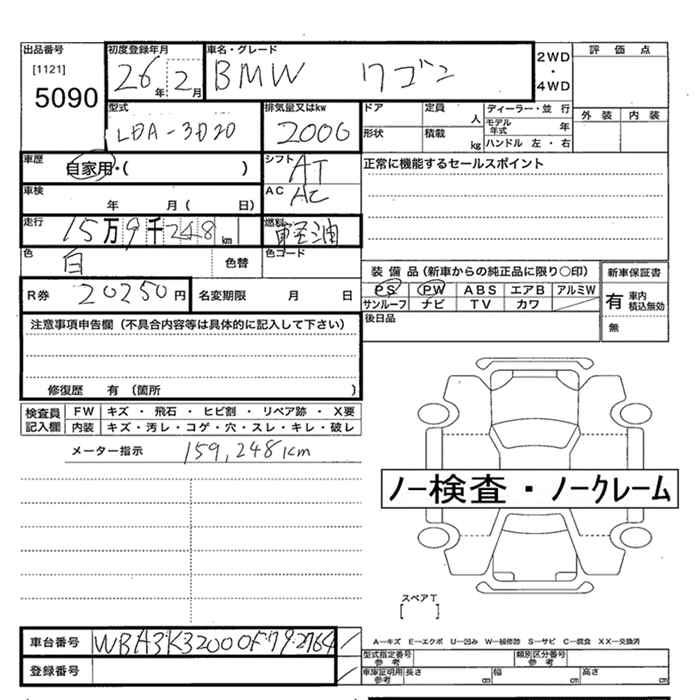 出品番号 初度登録年月 車名・グレード 2WD・4WD 評価点
[1121] 26年 2月 BMW ワゴン
5090
型式 排気量又はkw ドア 定員 人 ディーラー・並行 外装 内装
LDA-3D20 2000 形状 積載 kg モデル年式 年
ハンドル 左・右
車歴 自家用・( ) シフト AT 正常に機能するセールスポイント
車検 年 月( 日) AC AC
走行 15万9千248km 燃料 軽油
色 白 色替 色コード
装備品(新車からの純正品に限り○印) 新車保証書
R券 20250円 名変期限 月 日 PS PW ABS エアB アルミW 有 車内積込無効
サンルーフ ナビ TV カワ 無
注意事項申告欄(不具合内容等は具体的に記入して下さい) 後日品
修復歴 有(箇所 )
検査員記入欄 FW キズ・飛石・ヒビ割・リペア跡・X要
内装 キズ・汚レ・コゲ・穴・スレ・キレ・破レ
メーター指示 159,248km
ノー検査・ノークレーム
スペアT
[ ]
車台番号 WBA3K32000F792764
A―キズ E―エクボ U―凹み W―補修跡 S―サビ C―腐食 XX―交換済
型式指定番号 参考 類別区分番号 参考
登録番号 車庫証明用参考 長さ cm 幅 cm 高さ cm